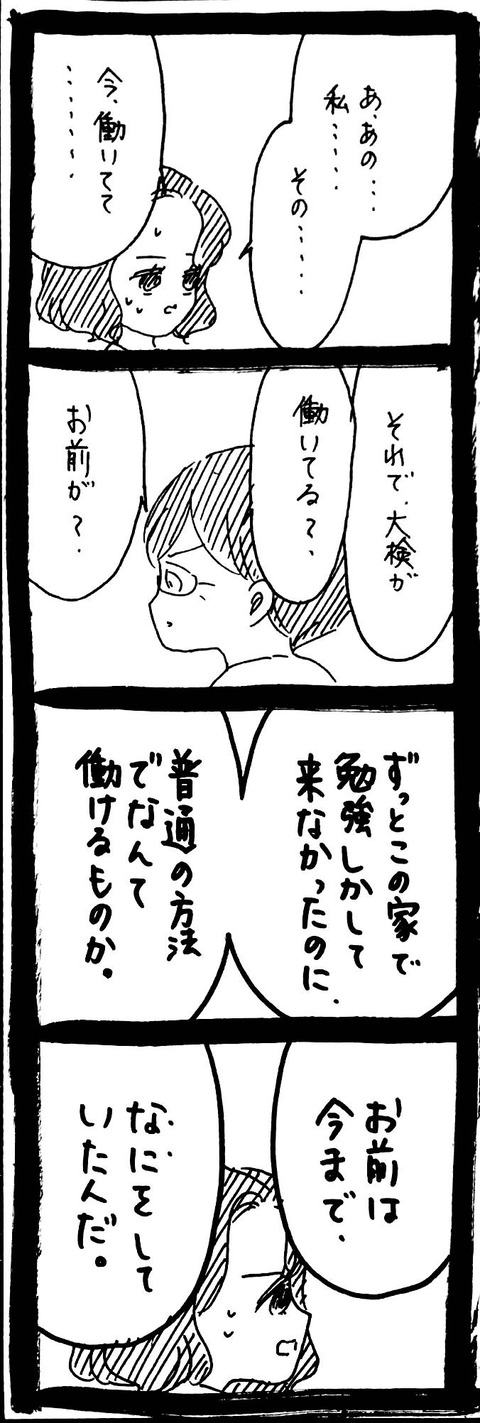 あ、あの…
私……
その……
今、働いてて
……、
それで、大検が
働いてる？、
お前が？．
ずっとこの家で
勉強しかして
来なかったのに、
普通の方法
でなんて
働けるものか。
お前は
今まで、
なにをして
いたんだ。